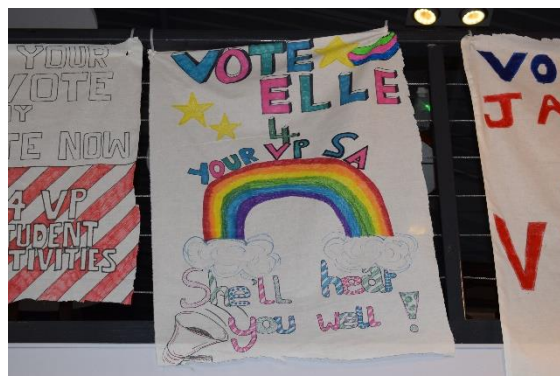 YOUR
VOTE
TE NOW
4 VP
STUDENT
TIVITIES
VOTE
ELLE
4
YOUR VP SA
She'll hear
you well!
VO
JA
V